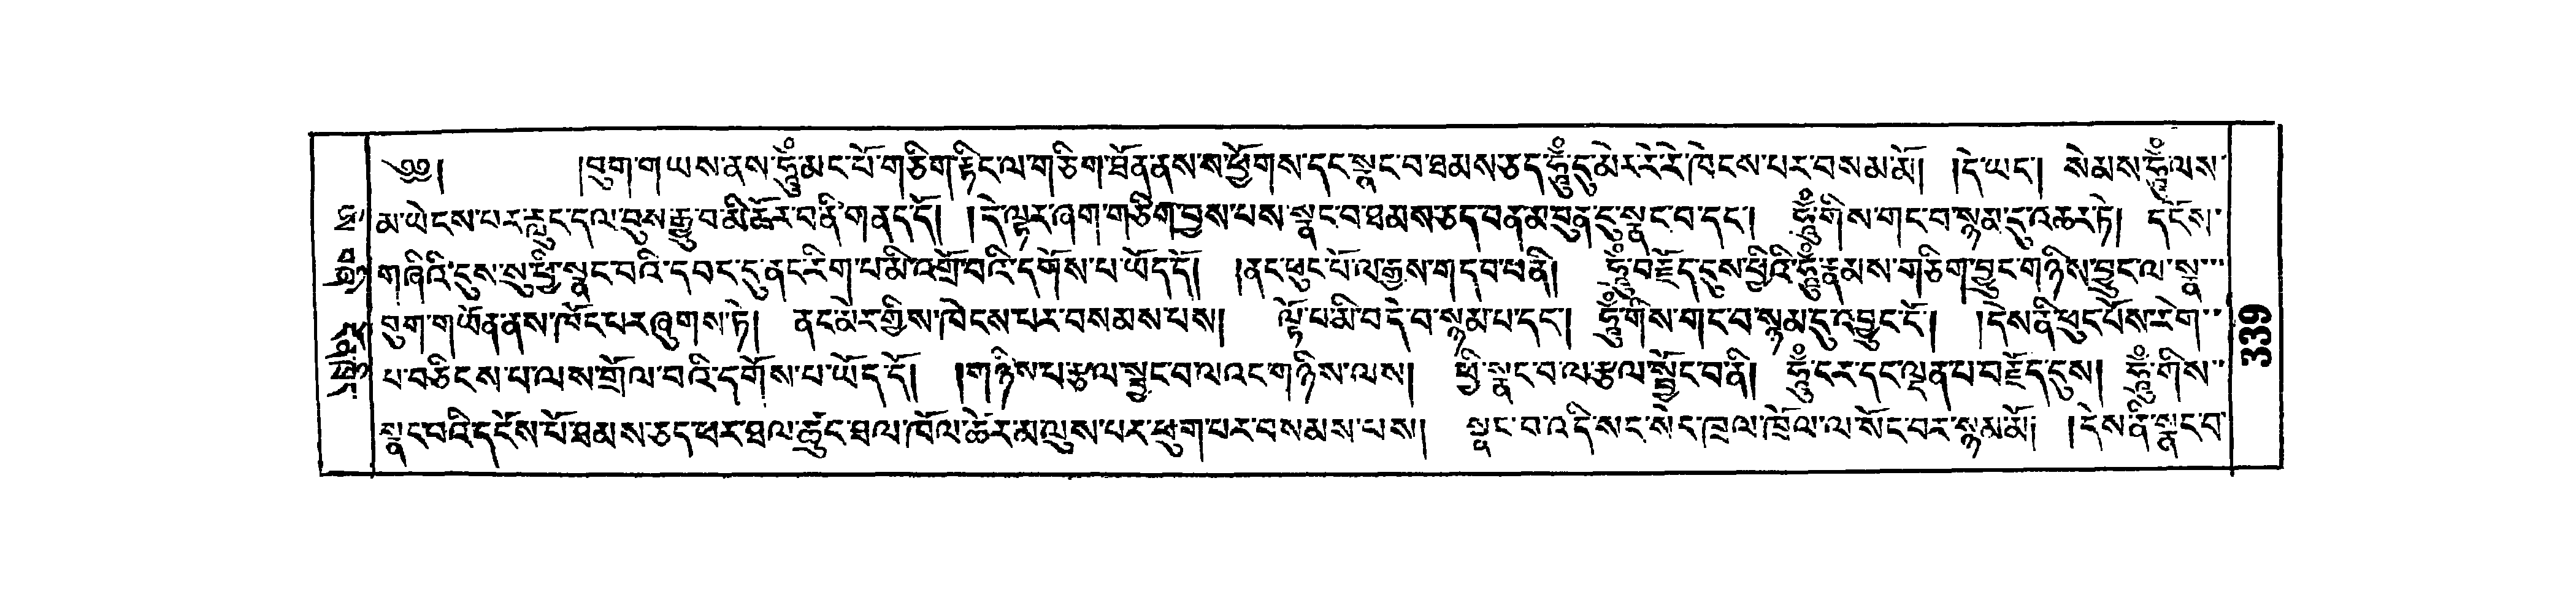 ༄༅། །བུག་གཡས་ནས་ཧཱུྃ་མང་པོ་གཅིག་རྟིང་ལ་གཅིག་ཐོན་ནས་ས་ཕྱོགས་དང་སྣང་བ་ཐམས་ཅད་ཧཱུྃ་དུ་མེར་རེ་རེ་ཁེངས་པར་བསམ་མོ། །དེ་ཡང་། སེམས་ཧཱུྃ་ལས་
མ་ཡེངས་པར་རླུང་དལ་བུས་རྒྱུ་བ་མི་ཚོར་བ་ནི་གནད་དོ། །དེ་ལྟར་ཞག་གཅིག་བྱས་པས་སྣང་བ་ཐམས་ཅད་བན་མ་བུན་དུ་སྣང་བ་དང་། ཧཱུྃ་གིས་གང་བ་སྙམ་དུ་འཆར་ཏེ། དངོས་
གཞིའི་དུས་སུ་ཕྱི་སྣང་བའི་དབང་དུ་ནང་རིག་པ་མི་འགྲོ་བའི་དགོས་པ་ཡོད་དོ། །ནང་ཕུང་པོ་ལ་རྒྱས་གདབ་པ་ནི། ཧཱུྃ་བརྗོད་དུས་ཕྱིའི་ཧཱུྃ་རྣམས་གཅིག་བྱུང་གཉིས་བྱུང་ལ་སྣ་
བུག་གཡོན་ནས་ཁོང་པར་ཞུགས་ཏེ། ནང་མེར་གྱིས་ཁེངས་པར་བསམས་པས། ལྟོ་བ་མི་བདེ་བ་སྙམ་པ་དང་། ཧཱུྃ་གིས་གང་བ་སྙམ་དུ་འབྱུང་ངོ་། །དེས་ནི་ཕུང་པོས་རིག་
པ་བཅིངས་པ་ལས་གྲོལ་བའི་དགོས་པ་ཡོད་དོ། །གཉིས་པ་རྩལ་སྦྱང་བ་ལའང་གཉིས་ལས། ཕྱི་སྣང་བ་ལ་རྩལ་སྦྱོང་བ་ནི། ཧཱུྃ་ངར་དང་ལྡན་པ་བརྗོད་དུས། ཧཱུྃ་གིས་
སྣང་བའི་དངོས་པོ་ཐམས་ཅད་ཕར་ཐལ་ཚུར་ཐལ་ཁོལ་ཆེར་མ་ལུས་པར་ཕུག་པར་བསམས་པས། སྣང་བ་འདི་སང་སེང་ཁྲལ་ཁྲོལ་ལ་སོང་བར་སྙམ་མོ། །དེས་ནི་སྣང་བ་
༡༣༣